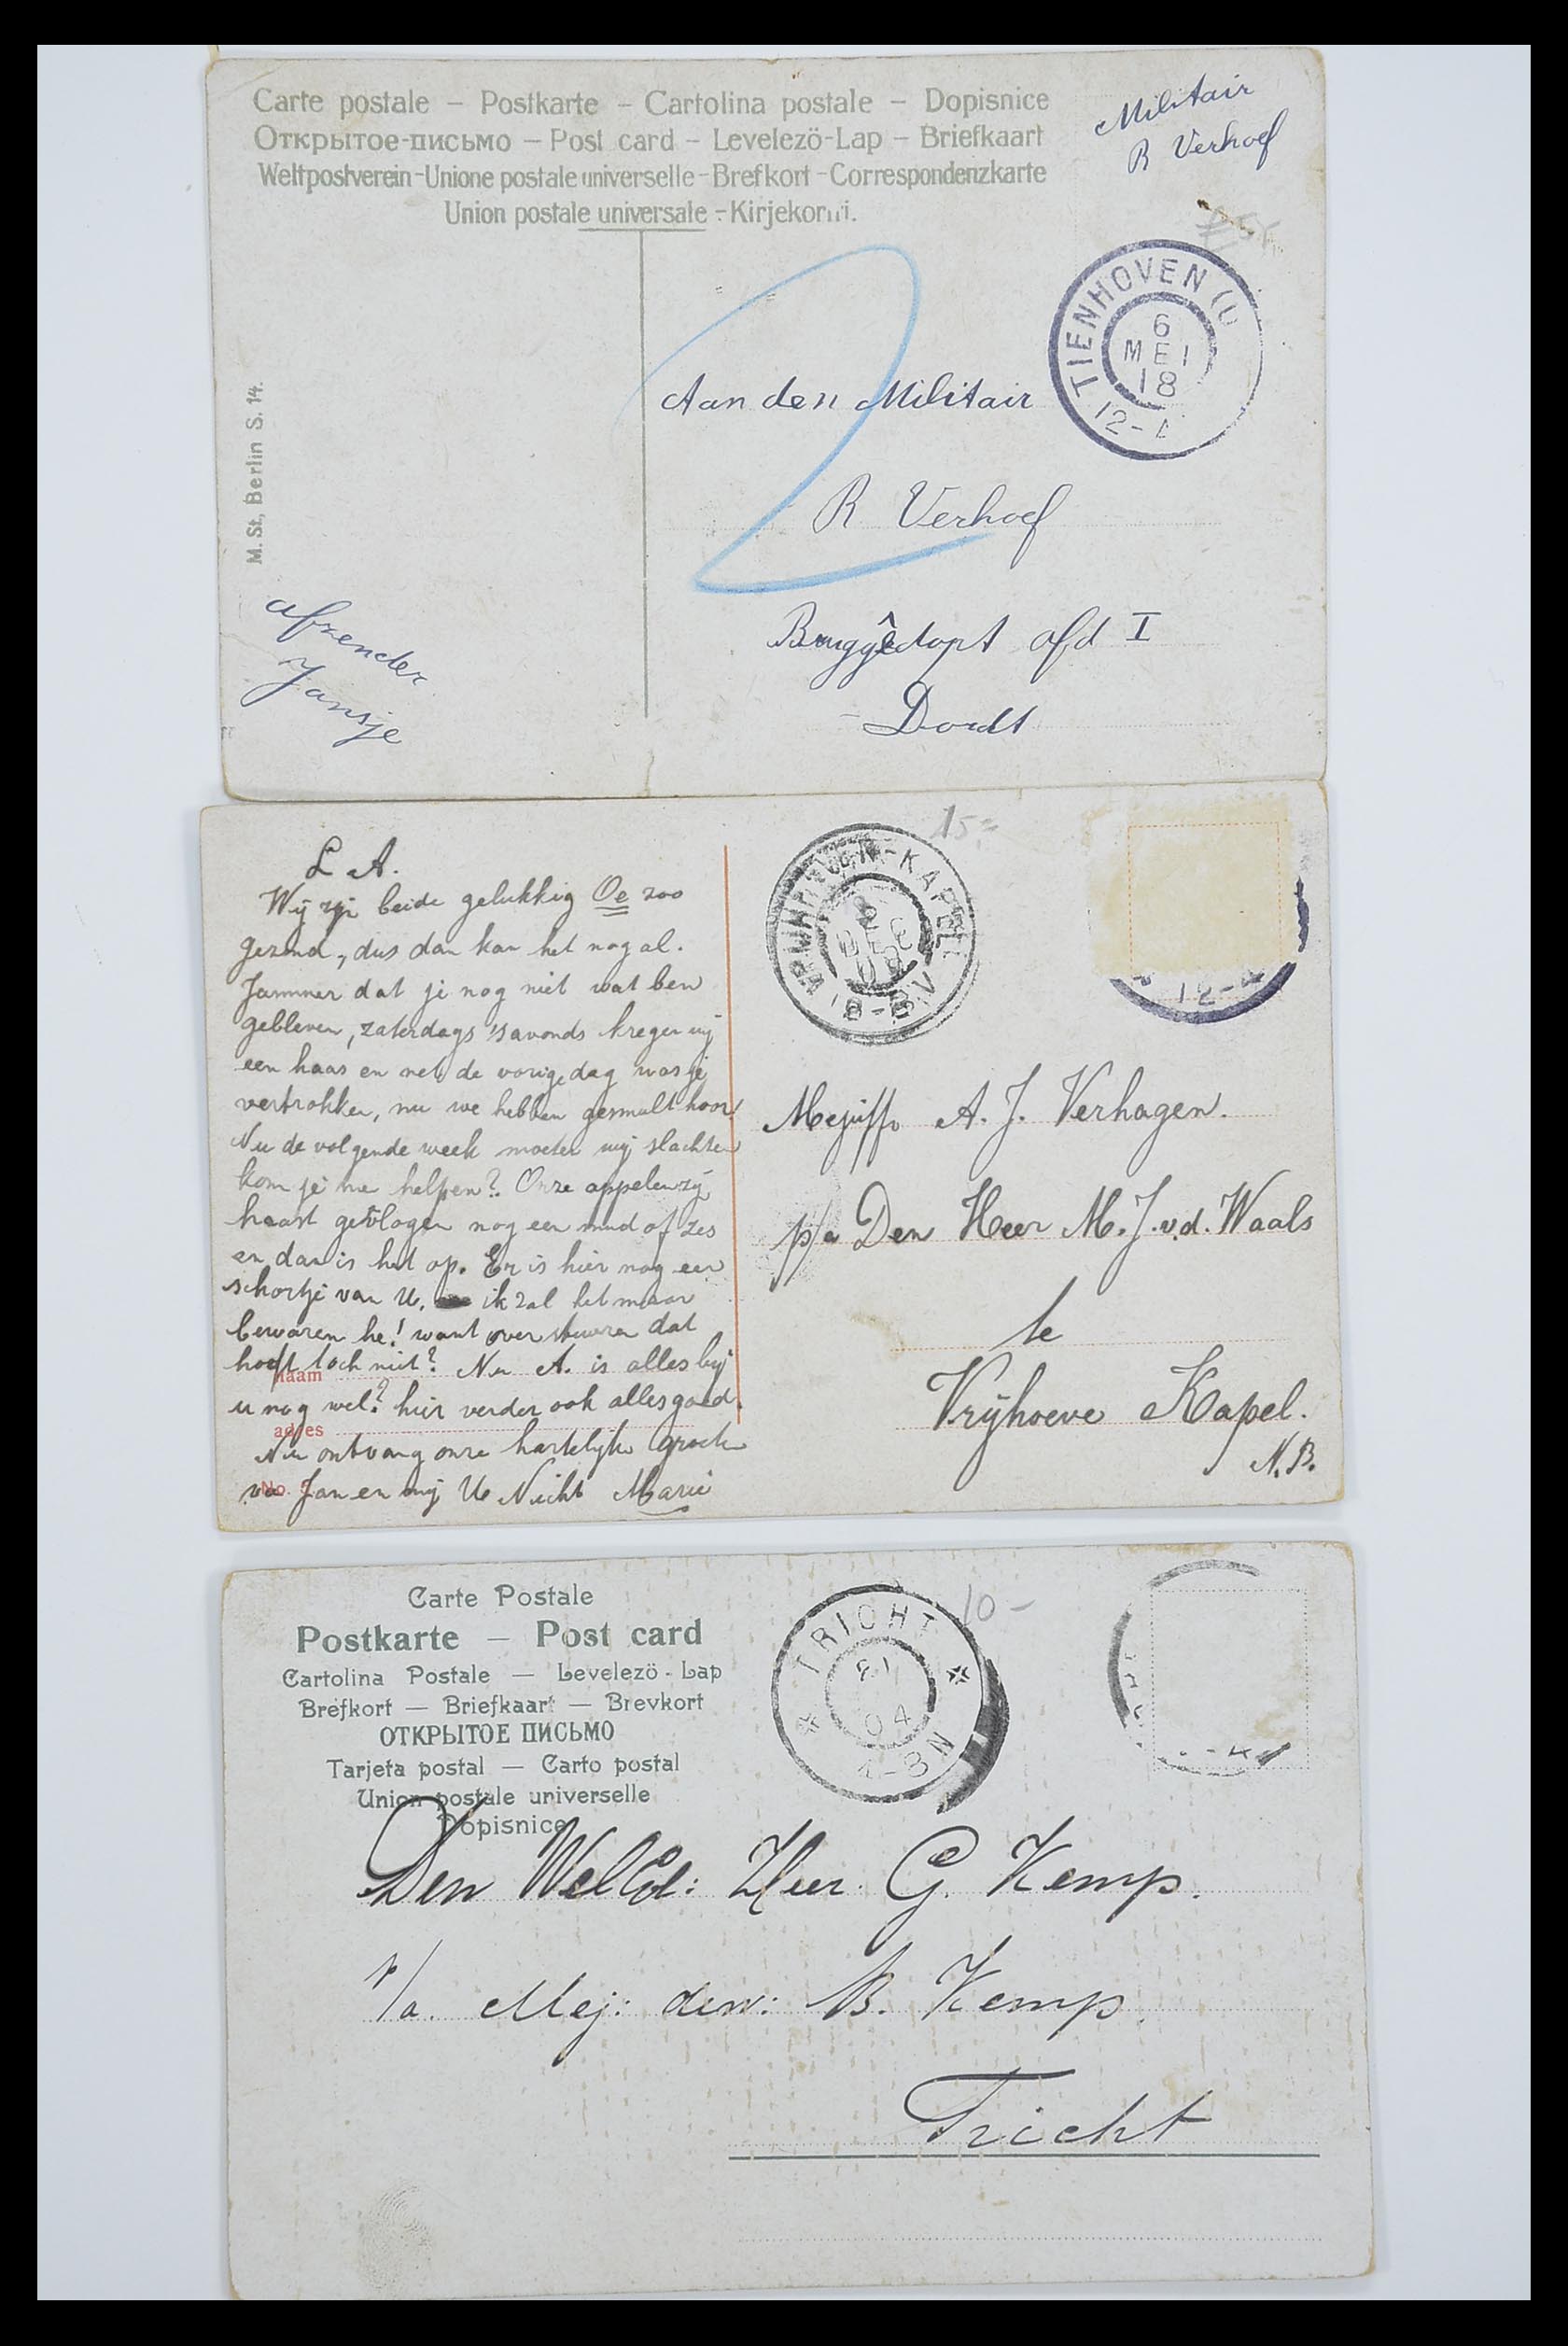 Carte postale – Postkarte – Cartolina postale – Dopisnice
Открытое-письмо – Post card – Levelezö-Lap – Briefkaart
Weltpostverein-Unione postale universelle-Brefkort-Correspondenzkarte
Union postale universale -Kirjekortti.
Militair
R Verhoef
TIENHOVEN (U
6
MEI
18
12-
M. St., Berlin S. 14.
Aan den Militair
R Verhoef
afd I
Dordt
afzender
Jansje
15=
L A.
Wij zijn beide gelukkig Oe zoo
gezond, dus dan kan het nog al.
Jammer dat je nog niet wat ben
gebleven, zaterdags 's avonds kregen wij
een haas en net de vorige dag was je
vertrokken, nu we hebben gesmult hoor!
Nu de volgende week moeten wij slachten
kom je me helpen? Onze appelen zijn
haast gevlogen nog een mud of zes
en dan is het op. Er is hier nog een
schortje van U. ik zal het maar
bewaren he! want over sturen dat
hoeft toch niet? Nu A. is alles bij
naam
u nog wel? hier verder ook alles goed.
adres
Nu ontvang onze hartelijke groeten
No.
van Jan en mij Uw Nicht Marie
VRIJHOEVEN-KAPEL
DEC
8-8V
12-4
Mejuffr A. J. Verhagen.
p/a Den Heer M. J. v.d. Waals
te
Vrijhoeve Kapel.
N.B.
Carte Postale
Postkarte – Post card
Cartolina Postale — Levelezö-Lap
Brefkort — Briefkaart — Brevkort
ОТКРЫТОЕ ПИСЬМО
Tarjeta postal — Carto postal
Union postale universelle
Dopisnice
TRICHT
04
-8N
10-
Den WelEd: Heer G. Kemp.
p/a. Mej: den: B. Kemp.
Tricht